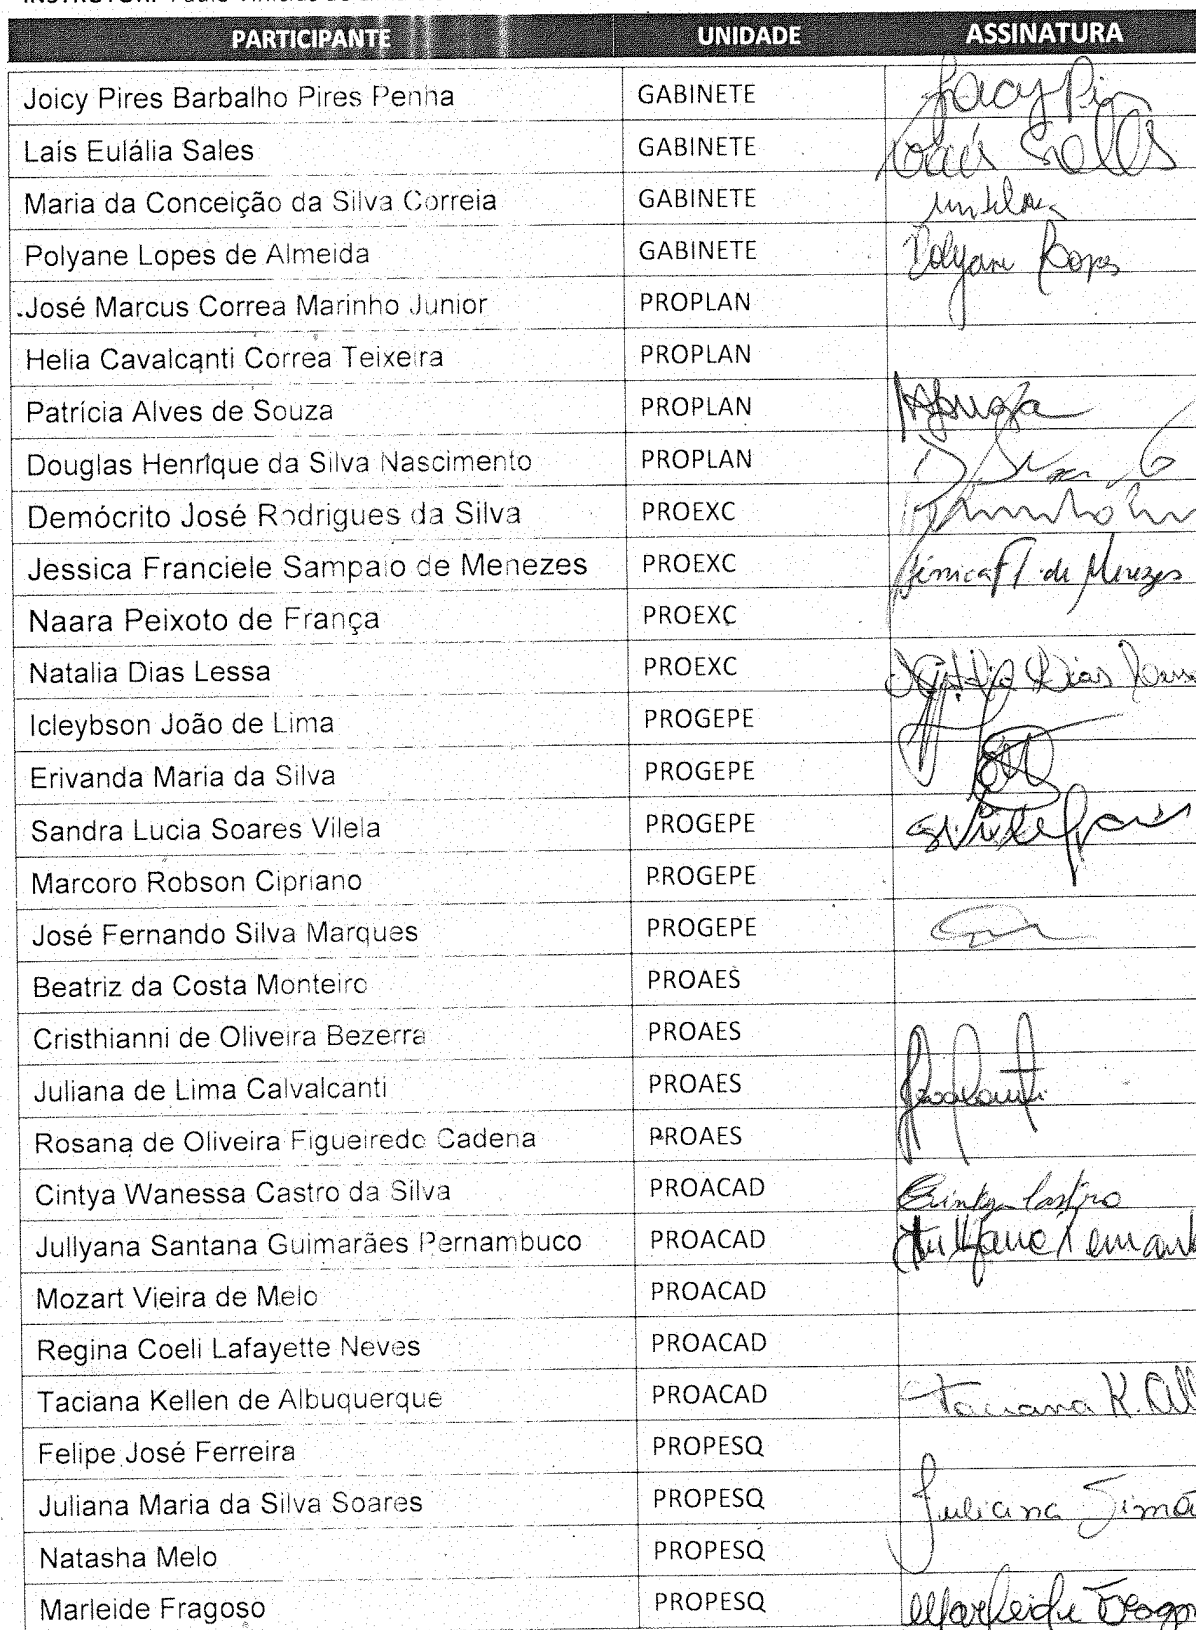 PARTICIPANTE UNIDADE ASSINATURA
Joicy Pires Barbalho Pires Penha GABINETE
Laís Eulália Sales GABINETE Laís Salles
Maria da Conceição da Silva Correia GABINETE
Polyane Lopes de Almeida GABINETE Polyane Lopes
José Marcus Correa Marinho Junior PROPLAN
Helia Cavalcanti Correa Teixeira PROPLAN
Patrícia Alves de Souza PROPLAN
Douglas Henrique da Silva Nascimento PROPLAN
Demócrito José Rodrigues da Silva PROEXC
Jessica Franciele Sampaio de Menezes PROEXC de Menezes
Naara Peixoto de França PROEXC
Natalia Dias Lessa PROEXC Natalia Dias
Icleybson João de Lima PROGEPE
Erivanda Maria da Silva PROGEPE
Sandra Lucia Soares Vilela PROGEPE
Marcoro Robson Cipriano PROGEPE
José Fernando Silva Marques PROGEPE
Beatriz da Costa Monteiro PROAES
Cristhianni de Oliveira Bezerra PROAES
Juliana de Lima Calvalcanti PROAES
Rosana de Oliveira Figueiredo Cadena PROAES
Cintya Wanessa Castro da Silva PROACAD Cintya Castro
Jullyana Santana Guimarães Pernambuco PROACAD
Mozart Vieira de Melo PROACAD
Regina Coeli Lafayette Neves PROACAD
Taciana Kellen de Albuquerque PROACAD Taciana K.
Felipe José Ferreira PROPESQ
Juliana Maria da Silva Soares PROPESQ Juliana
Natasha Melo PROPESQ
Marleide Fragoso PROPESQ Marleide